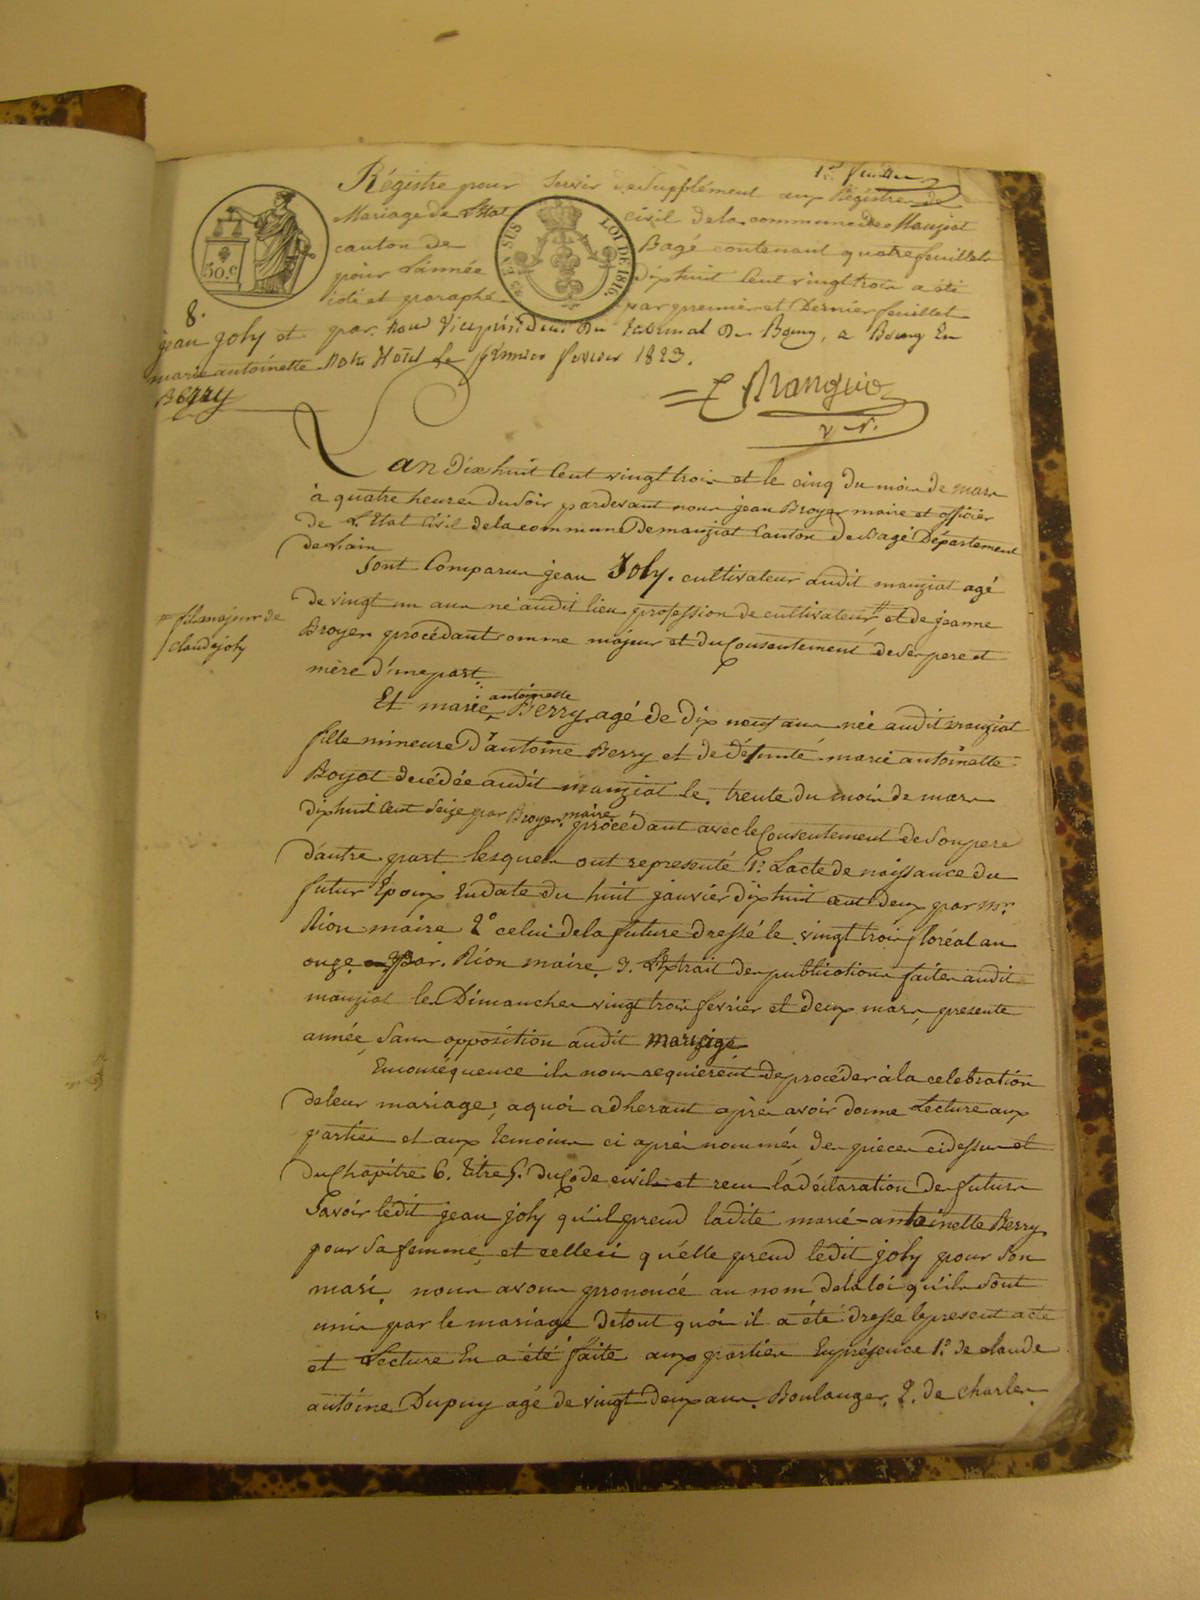 1er feuillet
Régistre pour servir de supplément aux Régistre de
Mariage de l'Etat civil de la commune de Manziat
canton de Bagé contenant quatre feuillets
pour l'année dix huit cent vingt trois a été
coté et paraphé par premier et Dernier feuillet
par nous Vice président du tribunal de Bourg, a Bourg En
notre Hôtel le premier fevrier 1823.
50.c
EN SUS
LOI DE 1816.
8.
jean joly et
marie antoinette
Berry
L'an Dix huit Cent vingt trois et le cinq du mois de mars
à quatre heures du soir pardevant nous jean Broyer maire et officier
de l'Etat Civil de la commune De manziat Canton de Bagé Département
de l'ain
Sont Comparus jean Joly. cultivateur audit manziat agé
de vingt un ans né audit lieu profession de cultivateur # et de jeanne
Broyer procédant comme majeur et du Consentement de Ses pere et
mère d'une part
# fils majeur de
claude joly
Et marie antoinette Berry agé de dix neuf ans née audit manziat
fille mineure D'antoine Berry et de défunte marie antoinette
Boyat decédée audit manziat le trente du mois de mars
dix huit Cent Seize par Broyer maire procédant avec le Consentement de Son pere
d'autre part lesquels ont representé 1º. L'acte de naissance du
futur Epoux En date du huit janvier dix huit cent deux par mr.
Rion maire 2º celui de la future dressé le vingt trois floréal an
onze par. Rion maire 3. Extrait des publications faites audit
manziat les Dimanches vingt trois fevrier et deux mars, presente
année, Sans opposition audit mariage
En conséquence ils nous requierent de procéder à la celebration
de leur mariage, a quoi adherant après avoir donné Lecture aux
parties et aux temoins ci après nommés, des pièces ci dessus et
du Chapitre 6. titre 5. du Code civil et recu la déclaration des futurs
Savoir ledit jean joly qu'il prend ladite marie-antoinette Berry
pour Sa femme, et celle ci qu'elle prend ledit joly pour Son
mari, nous avons prononcé au nom de la loi qu'ils Sont
unis par le mariage de tout quoi il a été dressé le present acte
et Lecture En a été faite aux parties En présence 1º. de claude
antoine Dupuy agé de vingt deux ans. Boulanger. 2. de charles